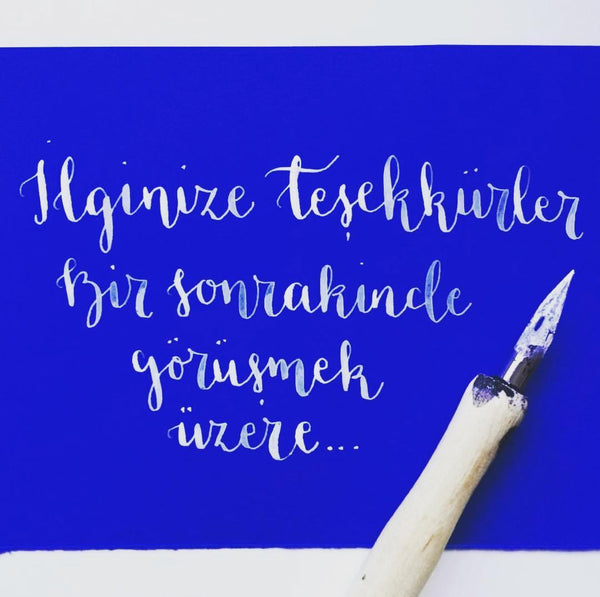 İlginize teşekkürler
Bir sonrakinde
görüşmek
üzere...